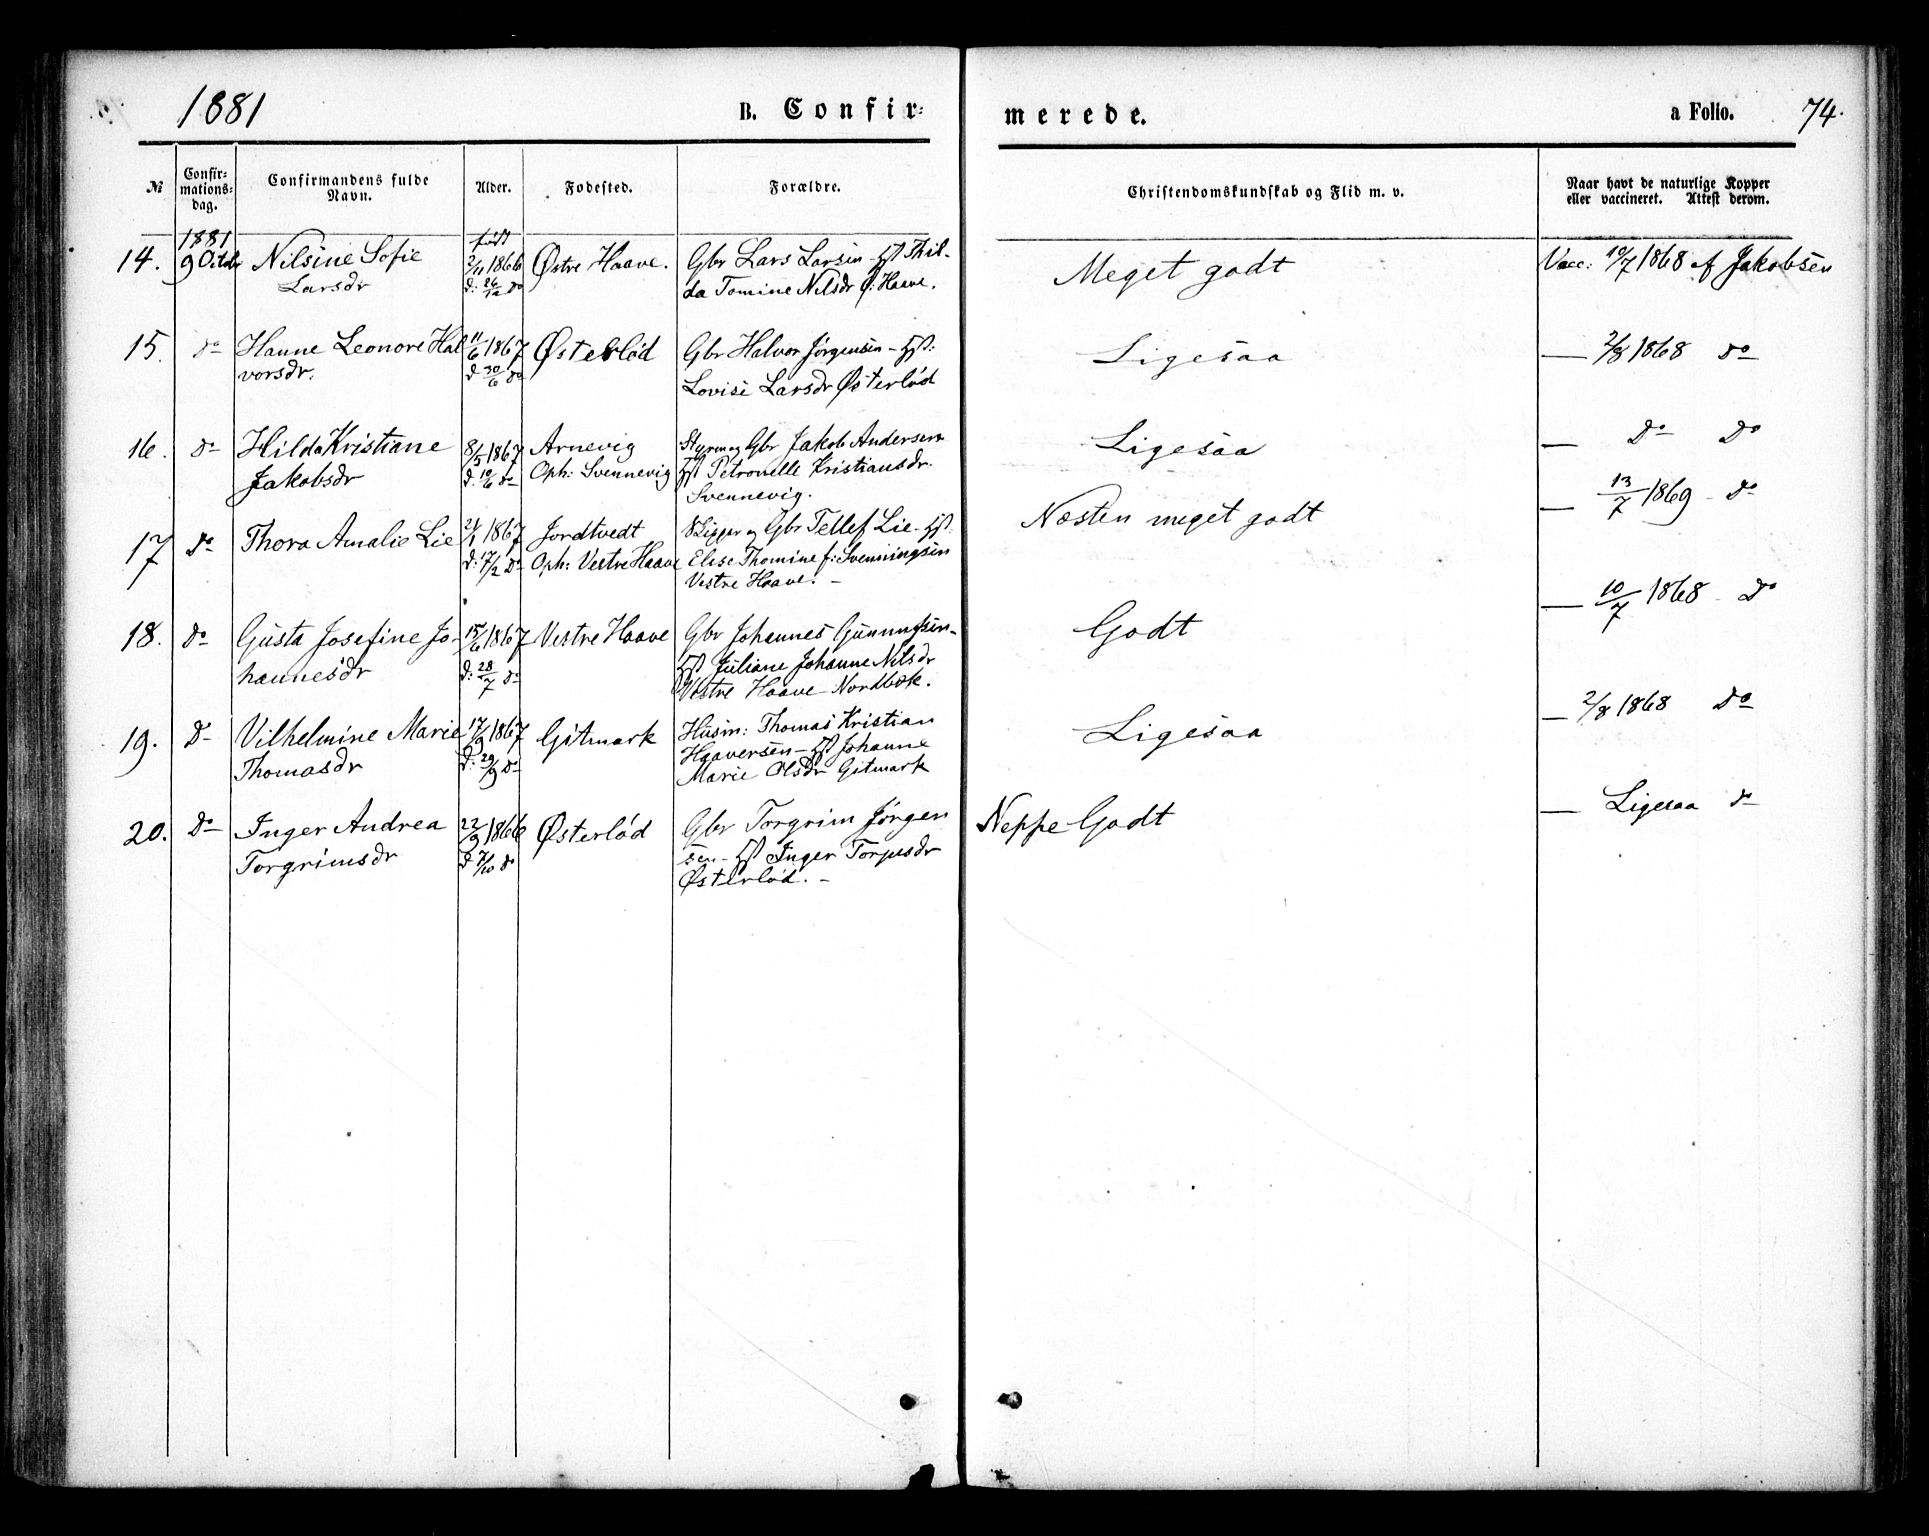 1881 B. Confir- merede. a Folio. 74.
№ Confirmationsdag. Confirmandens fulde Navn. Alder. Fødested. Forældre. Christendomskundskab og Flid m. v. Naar havt de naturlige Kopper eller vaccineret. Attest derom.
1881 født
14. 9 Octbr Nilsine Sofie 2/11 1866 Østre Haave. Gbr Lars Larsen - Hst Thil- Meget godt Vacc: 10/7 1868 af Jakobsen
Larsdr d: 26/12 do da Tomine Nilsdr Ø: Haave.
15. do Hanne Leonore Hal 11/6 1867 Østerlød Gbr Halvor Jørgensen - Hst: Ligesaa — 2/8 1868 do
vorsdr. d 30/6 do Lovise Larsdr Østerlød
16. do Hilda Kristiane 8/5 1867 Arnevig Styrm og Gbr Jakob Andersen Ligesaa — Do Do
Jakobsdr d. 10/6 do Oph: Svennevig Hst Petronelle Kristiansdr.
Svennevig.
17 Do Thora Amalie Lie 24/1 1867 Jordtvedt Skipper og Gbr Tellef Lie - Hst: Næsten meget godt — 13/7 1869 - do
d: 17/2 Do Oph: Vestre Haave Elise Thomine f: Svenningsen
Vestre Haave. -
18. do Gusta Josefine Jo- 15/6 1867 Vestre Haave Gbr Johannes Gunnufsen- Godt — 10/7 1868 - Do
hannesdr d: 28/7 do Hst Juliane Johanne Nilsdr
Vestre Haave - Nordbøk.
19. Do Vilhelmine Marie 17/9 1867 Gitmark Husm: Thomas Kristian Ligesaa — 2/8 1868 Do
Thomasdr D: 29/9 do Haaversen - Hst Johanne
Marie Olsdr Gitmark
20. Do Inger Andrea 22/9 1866 Østerlød Gbr Torgrim Jørgen Neppe Godt — Ligesaa do
Torgrimsdr d 7/10 do sen - Hst Inger Torjusdr
Østerlød. -